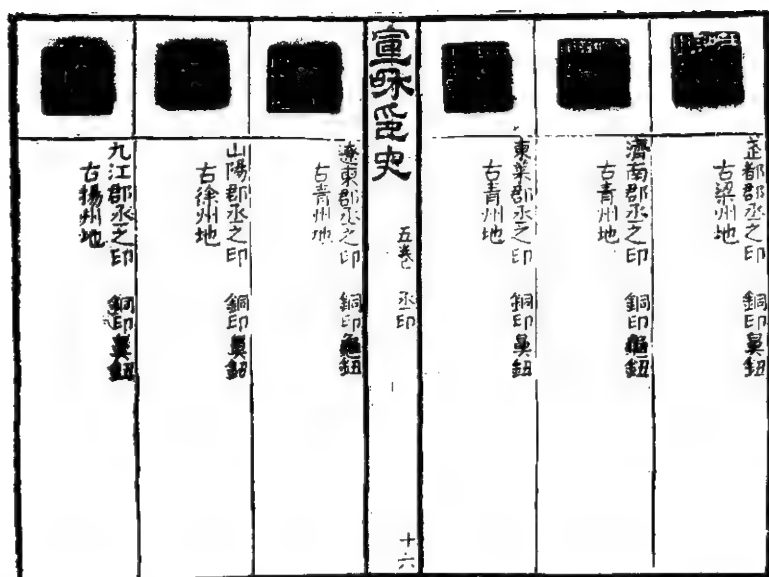 武都郡丞之印 銅印鼻鈕
古梁州地
濟南郡丞之印 銅印龜鈕
古青州地
東萊郡丞之印 銅印鼻鈕
古青州地
宣和印史 五卷 丞印 十六
遼東郡丞之印 銅印龜鈕
古青州地
山陽郡丞之印 銅印鼻鈕
古徐州地
九江郡丞之印 銅印鼻鈕
古揚州地